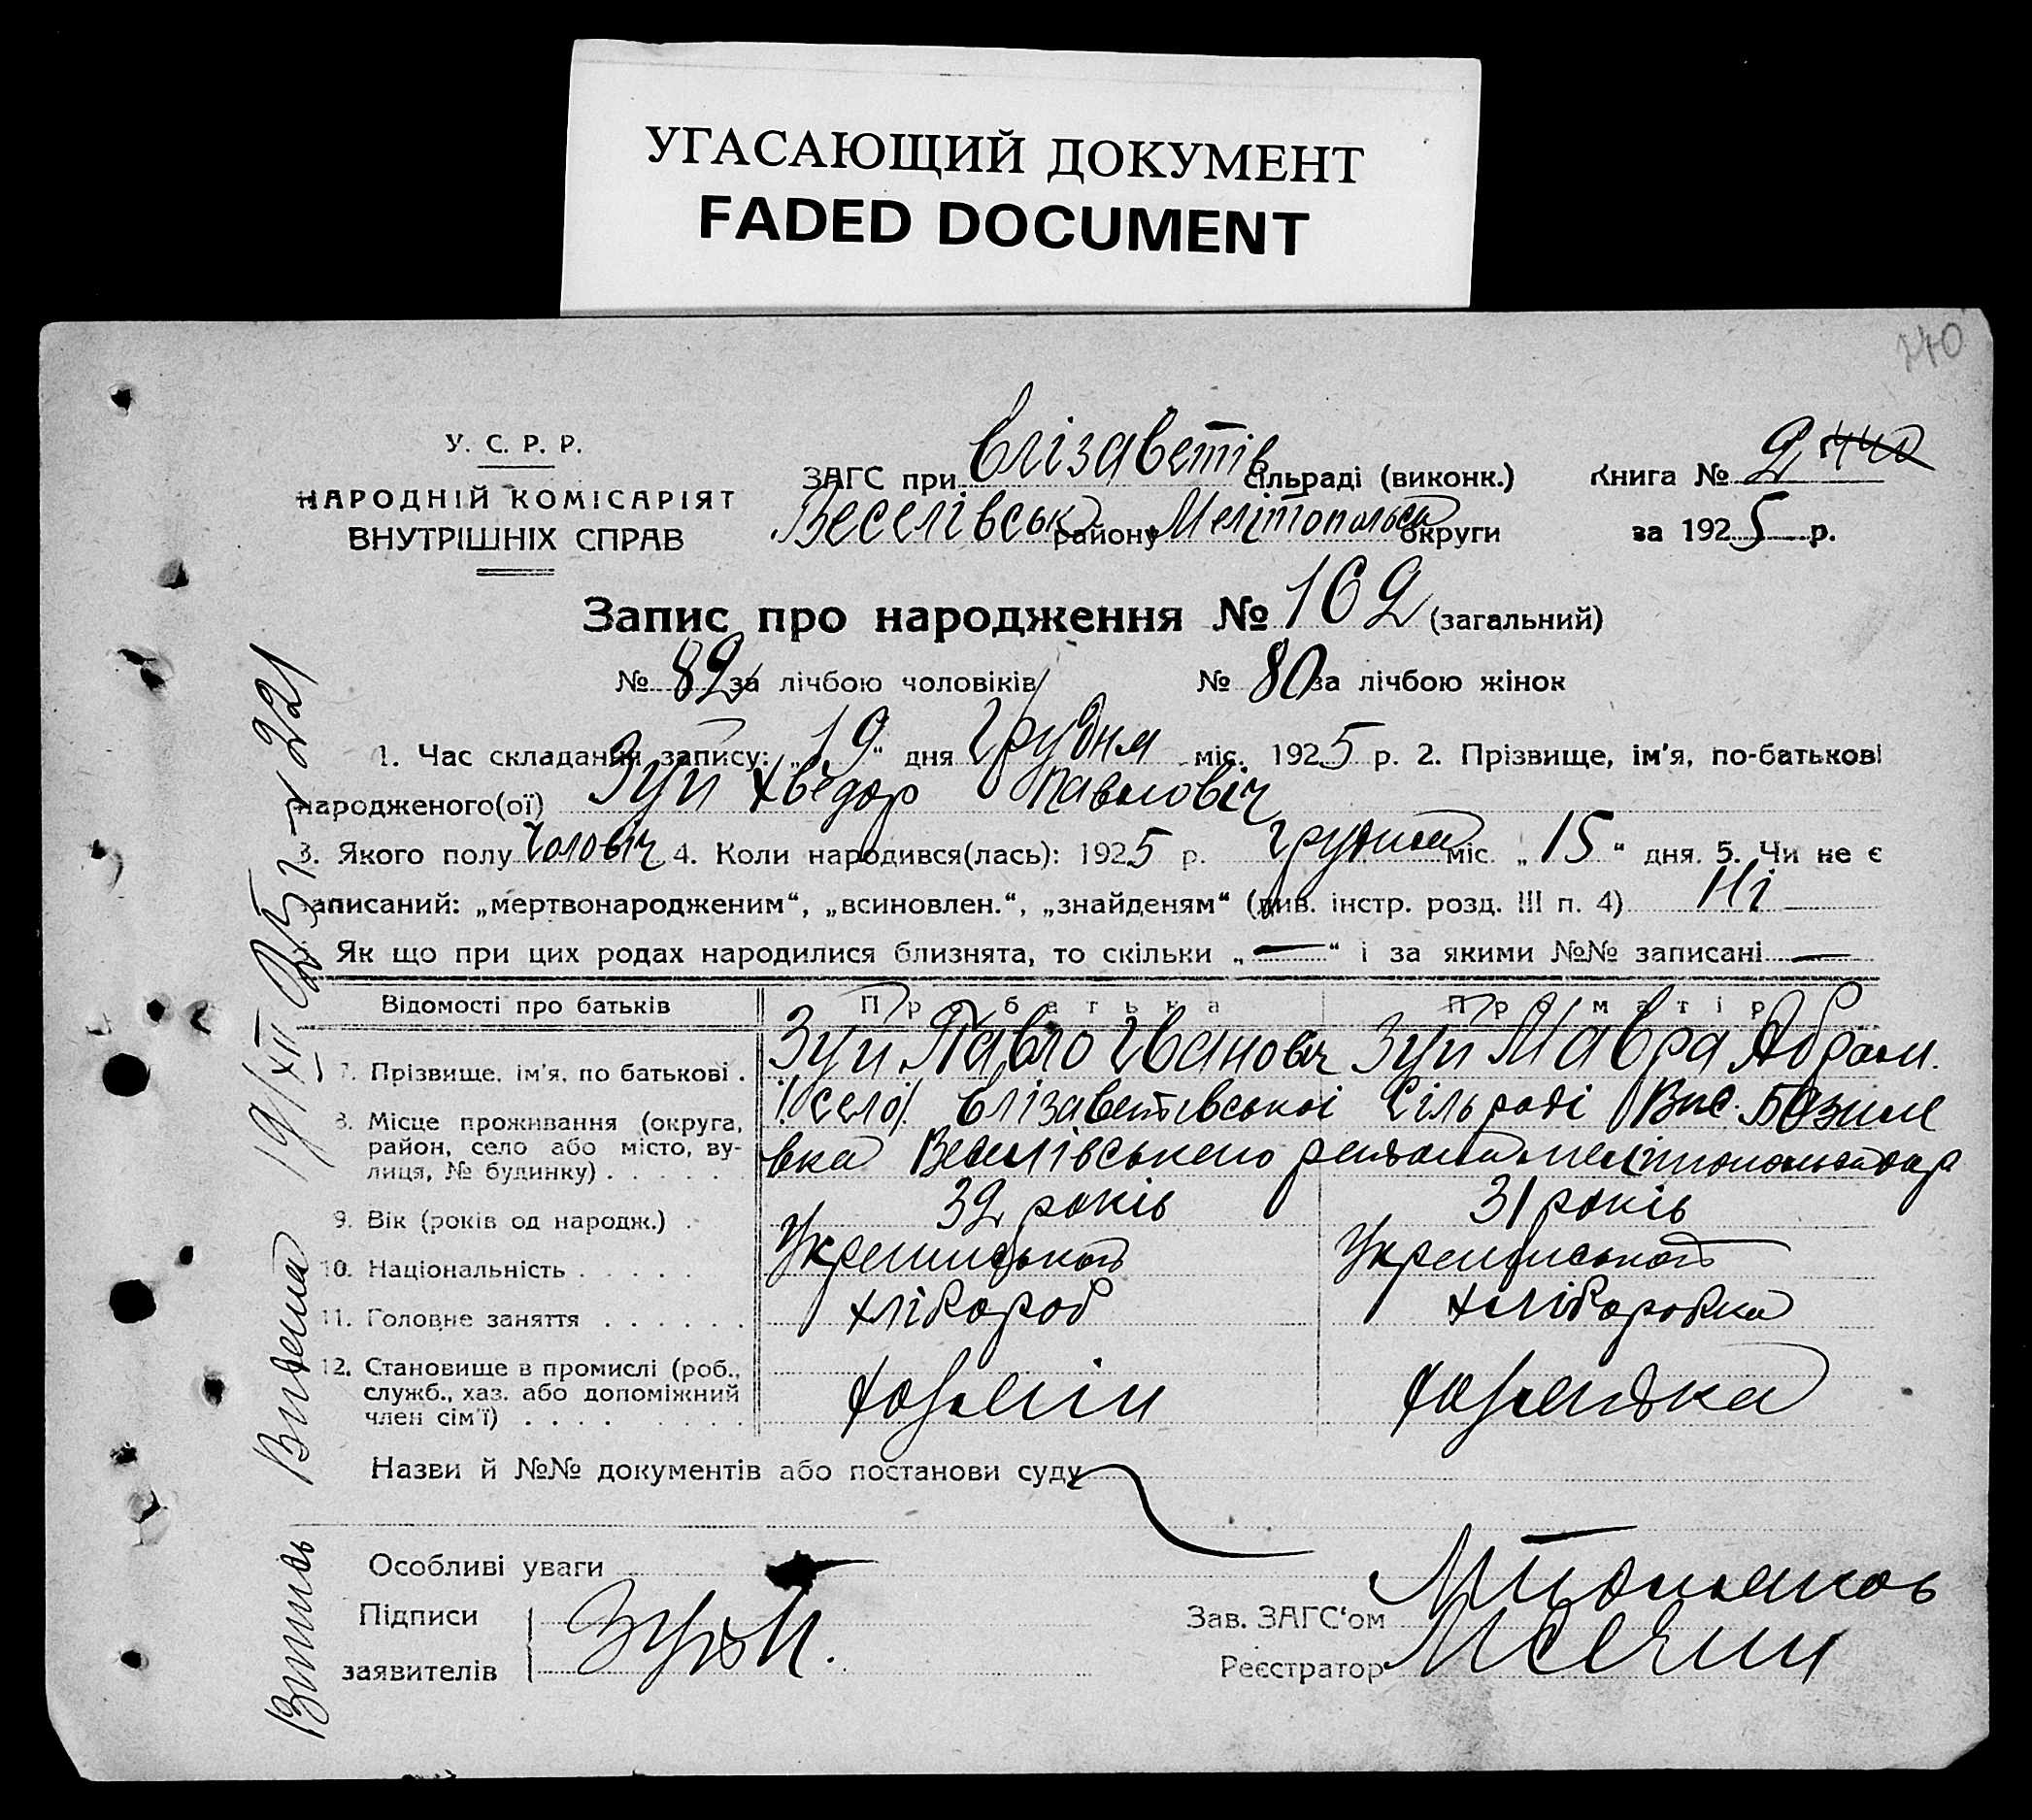 УГАСАЮЩИЙ ДОКУМЕНТ
FADED DOCUMENT
У. С. Р. Р.
НАРОДНІЙ КОМІСАРІЯТ
ВНУТРІШНІХ СПРАВ
ЗАГС при Єлізаветів сільраді (виконк.)
Веселівськ району Мелітопольськ округи
Книга № 2 440
за 1925 р.
Запис про народження № 162 (загальний)
№ 82 за лічбою чоловіків № 80 за лічбою жінок
1. Час складання запису: „19“ дня Грудня міс. 1925 р. 2. Прізвище, ім'я, по-батькові
народженого(ої) Зуй Хведор Павлович
3. Якого полу Чоловіч 4. Коли народився(лась): 1925 р. грудня міс. „15“ дня. 5. Чи не є
записаний: „мертвонародженим“, „всиновлен.“, „знайденям“ (див. інстр. розд. III п. 4) Ні
Як що при цих родах народилися близнята, то скільки „—“ і за якими №№ записані —
Відомості про батьків Про батька Про матір
7. Прізвище, ім'я, по батькові . Зуй Павло Іванович Зуй Мавра Абрам.
8. Місце проживання (округа, район, село або місто, вулиця, № будинку) . . . . . . /село/. Єлізаветівської Сільраді Вис.
Веселівського
9. Вік (років од народж.) . 32 років 31 років
10. Національність . . . . . Українського Українського
11. Головне заняття . . . . . . хлібороб хліборобка
12. Становище в промислі (роб., служб., хаз. або допоміжний член сім'ї) . . . . . . . . . хозяїн хозяйка
Назви й №№ документів або постанови суду
Особливі уваги —
Підписи
заявителів
Зуй
Зав. ЗАГС'ом
Реєстратор
Витись Видена 19/XII 25 р 221